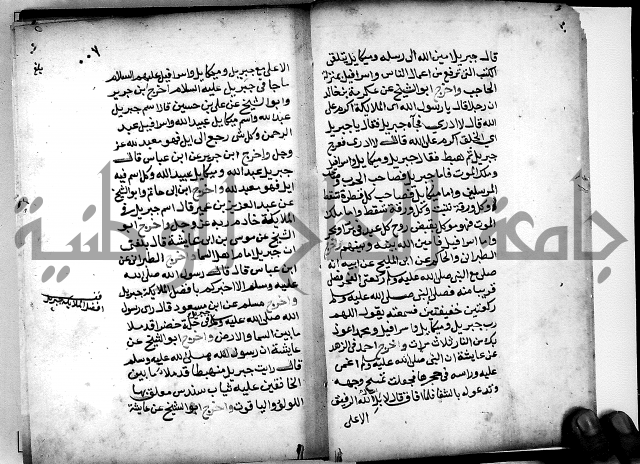 قال جبريل امين الله الى رسله وميكايل يتلقى
الكتب التي ترفع من اعمال الناس واسرافيل بمنزلة
الحاجب واخرج ابوالشيخ عن عكرمة بن خالد
ان رجلا قال يا رسول الله اى الملايكة اكرم على
الله قال لا ادرى فجاه جبريل فقال يا جبريل
اى الخلق اكرم على الله قال لا ادرى فعرج
جبريل ثم هبط فقال جبريل وميكايل واسرافيل
وملك الموت فاما جبريل فصاحب الحرب وصاحب
المرسلين واما ميكايل فصاحب كل قطرة تسقط
وكل ورقة تنبت وكل ورقة تسقط واما ملك
الموت فهو موكل بقبض روح كل عبد في بر او بحر
واما اسرافيل فامين الله بينه وبينهم واخرج
الطبراني والحاكم عن ابى المليح عن ابيه انه
صلى مع النبي صلى الله عليه وسلم ركعتي الفجر فصلى
قريبا منه فصلى النبي صلى الله عليه وسلم
ركعتين خفيفتين فسمعته يقول اللهم
رب جبريل وميكايل واسرافيل ومحمد اعوذ
بك من النار ثلاث مرات واخرج احمد في الزهد
عن عائشة ان النبي صلى الله عليه وسلم اغمى
عليه وراسه في حجرها فجعلت تمسح وجهه
وتدعو له بالشفا فلما افاق قال لا بل الله الرفيق
الاعلى
٠٠٧
الاعلى مع جبريل وميكايل واسرافيل عليهم السلام
ما جا في جبريل عليه السلام اخرج ابن جرير
وابو الشيخ عن على بن حسين قال اسم جبريل
عبد الله واسم ميكايل عبيد الله واسرافيل عبد
الرحمن وكل شى رجع الى ايل فهو معبد لله عز
وجل واخرج ابن جرير عن ابن عباس قال
جبريل عبد الله وميكايل عبيد الله وكل اسم فيه
ايل فهو معبد لله واخرج ابن ابى حاتم وابوالشيخ
عن عبد العزيز بن عمير قال اسم جبريل في
الملايكة خادم ربه عز وجل واخرج ابو
الشيخ عن موسى بن ابى عايشة قال بلغنى
ان جبريل امام اهل السما واخرج الطبرانى عن
ابن عباس قال قال رسول الله صلى الله
عليه وسلم الا اخبركم بافضل الملايكة جبريل
واخرج مسلم عن ابن مسعود قال راى رسول
الله صلى الله عليه وسلم جبريل في حلة خضرا قد ملا
ما بين السما والارض واخرج ابو الشيخ عن
عايشة ان رسول الله صلى الله عليه وسلم
قال رايت جبريل منهبطا قد ملا ما بين
الخافقين عليه ثياب سندس معلق بها
اللولؤ والياقوت واخرج ابو الشيخ عن عايشة
افضل الملايكة جبريل
جامعة النجاح الوطنية